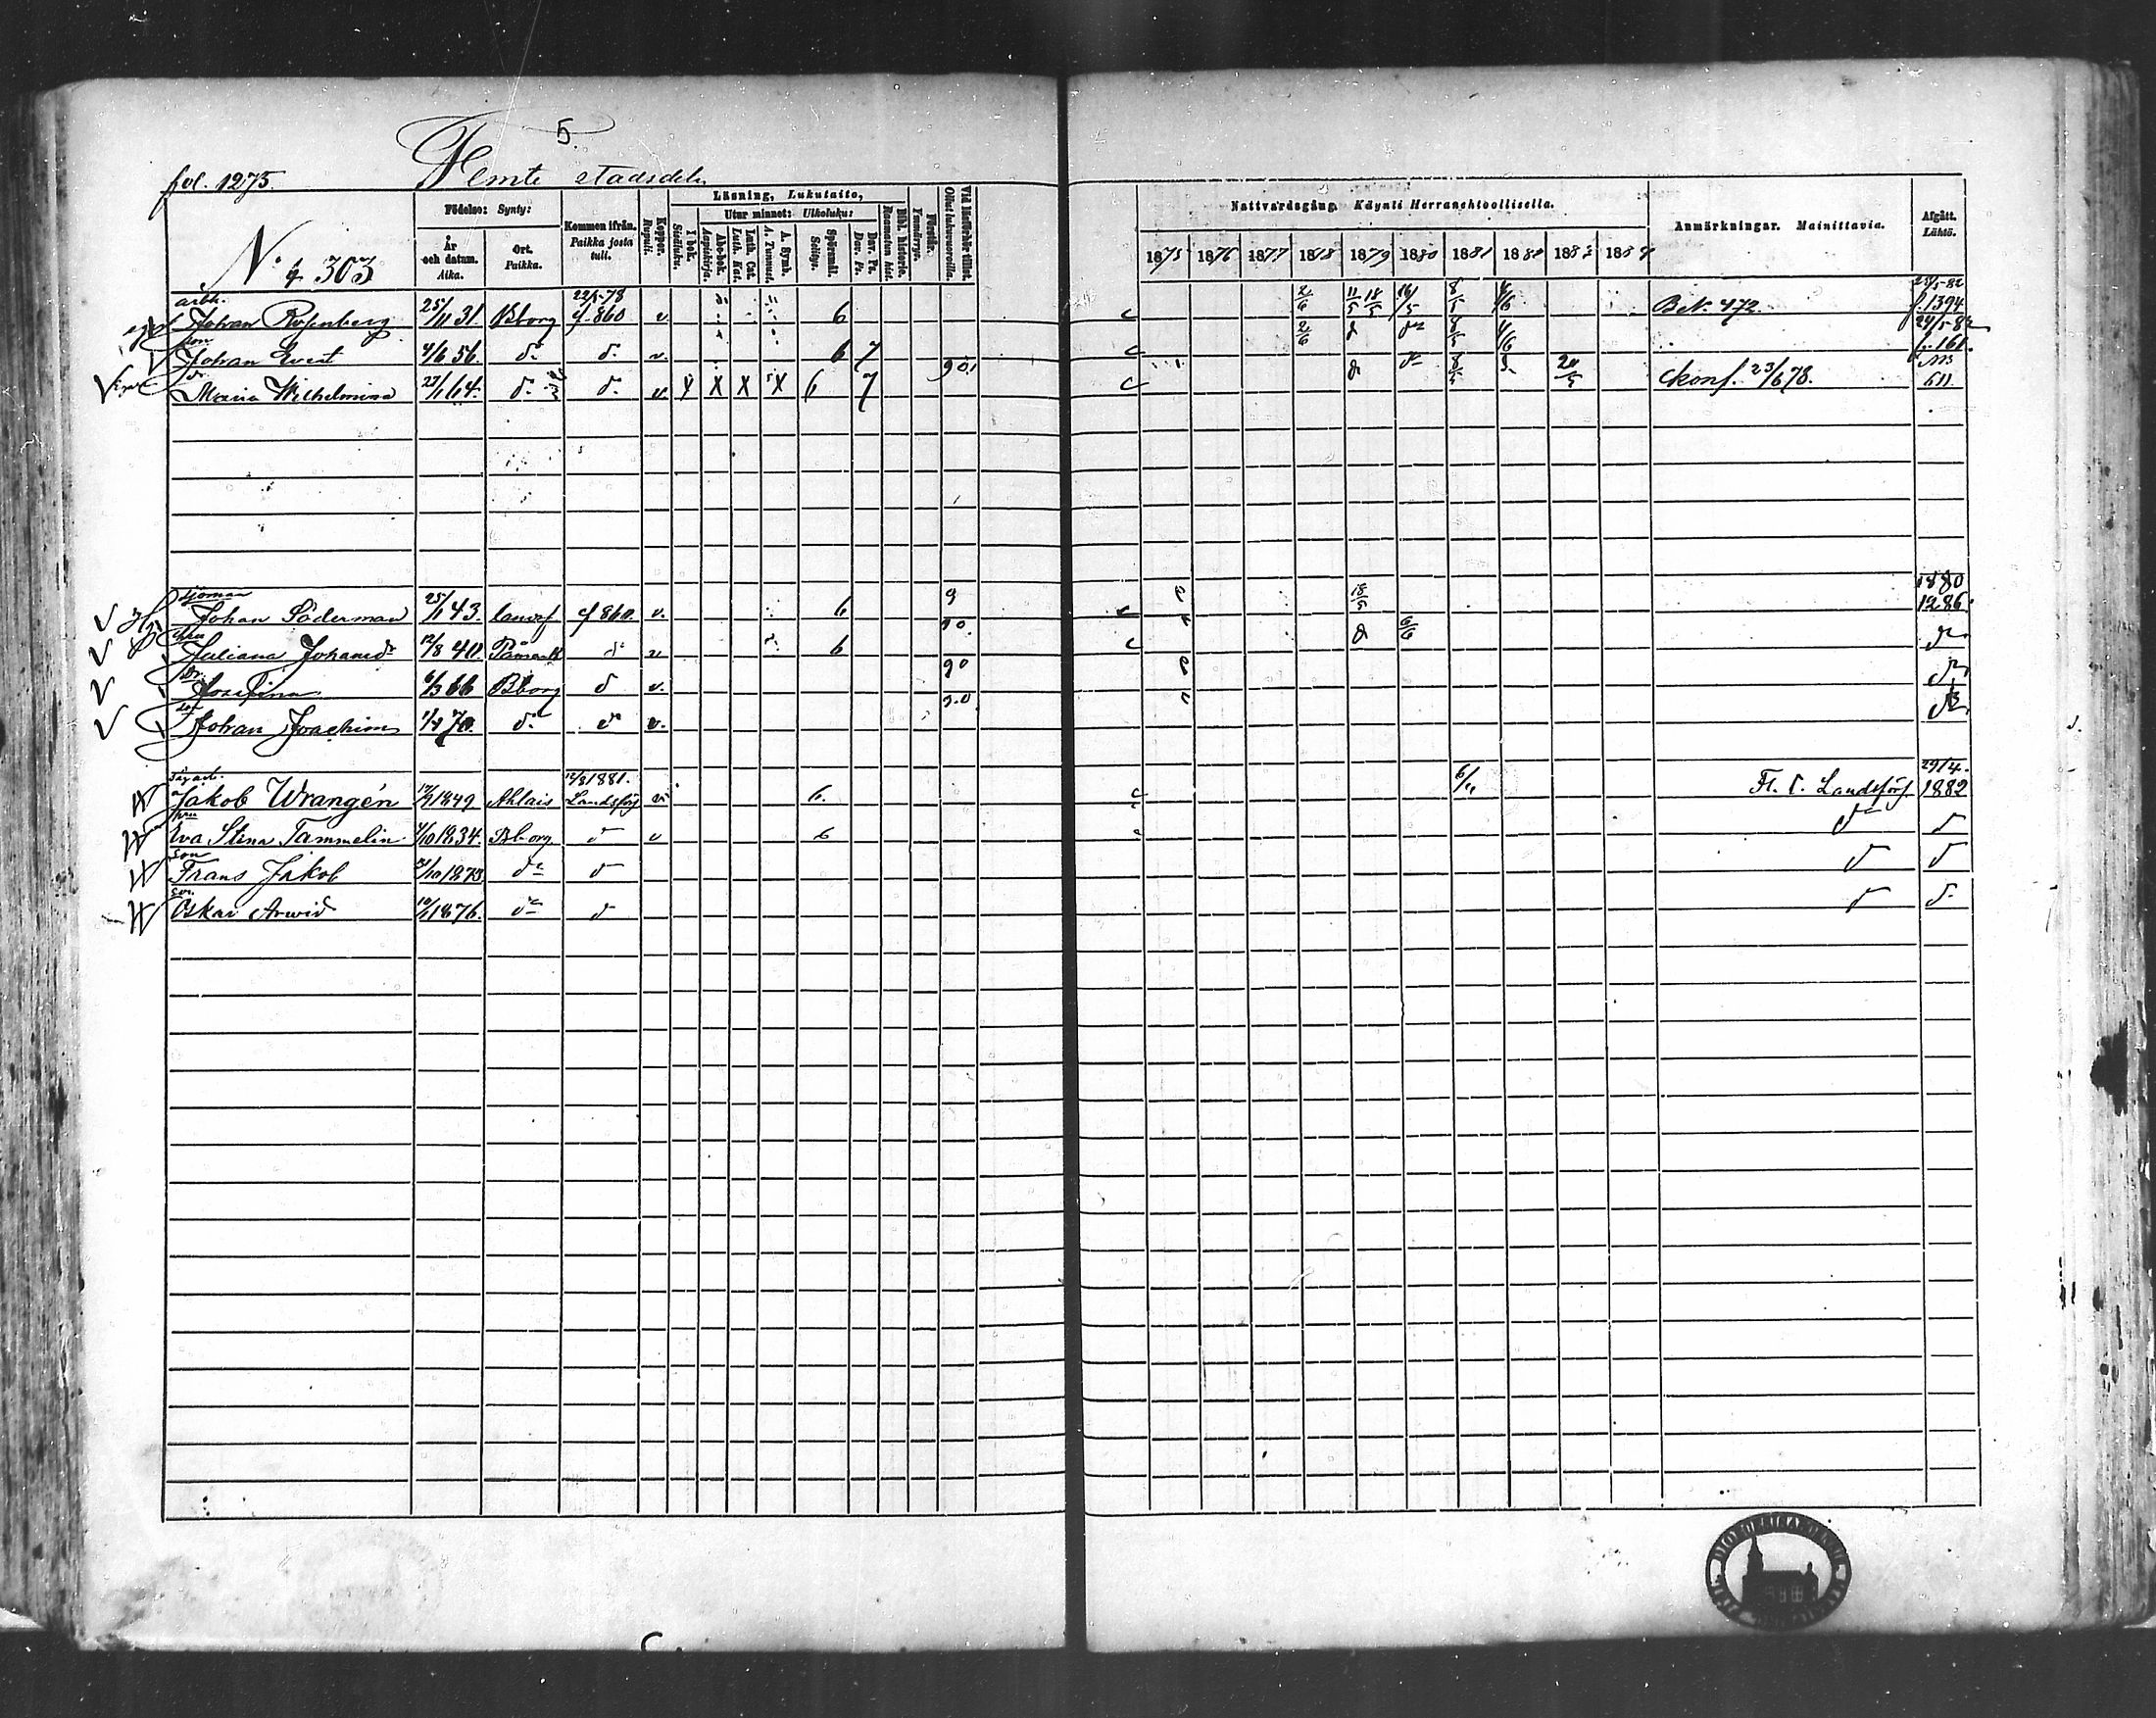 5.
fol. 1275. Femte stadsdelen
N:o 4 303
Födelse: Synty:
År och datum. Aika.
Ort. Paikka.
Kommen ifrån. Paikka josta tuli.
Koppor. Rupuli.
Läsning, Lukutaito,
I bok. Sisäluku.
Utur minnet: Ulkoluku:
Abc-bok. Aapiskirja.
Luth. Cat. Luth. Kat.
A. Symb. A. Tunnust.
Spörsmål. Selitys.
Dav. Ps. Dav. Ps.
Bibl. historie. Raamatun hist.
Förstår. Ymmärrys.
Vid läseförhör tillst. Ollut lukuvuoroilla.
Nattvardsgång. Käynti Herranehtoollisella.
1875 1876 1877 1878 1879 1880 1881 1882 1883 1884
Anmärkningar. Mainittavia.
Afgått. Lähtö.
arb. 22/5-78 25/5-82
Johan Rosenberg 25/11 31. Bborg f. 860 v 6 c 2/6 11/5 18/5 16/5 8/5 4/6 Bet. 472. f. 1394
son 24/5-82
Johan Evert 4/6 56. do do v 6 7 c 2/6 8/5 4/6 f. 161.
dr
Maria Wilhelmina 23/1 64. do do v X X X X 6 7 c 8/5 20/5 konf. 23/6 78. 611
sjöman 9 18/5 1880
Johan Söderman 25/1 43. f 860. v. 6 c 1286.
hu 90. 6/6
Juliana Johansdr 12/8 40. Påmark do v 6 c do
dr 90
Josefina 6/3 66 Bborg d v. do
son
Johan Joachim 1/4 70. do do v. do
12/8 1881. 6/11 29/4.
Jakob Wrangén 1849 Ahlais Landsförs v 6. c Fl. t. Landsförs. 1882
hu
Eva Stina Tammelin 4/10 1834. Bborg. d v 6 c d d
son
Frans Jakob /10 1873 do d d d
son
Oskar Arwid 1876. do d d d.